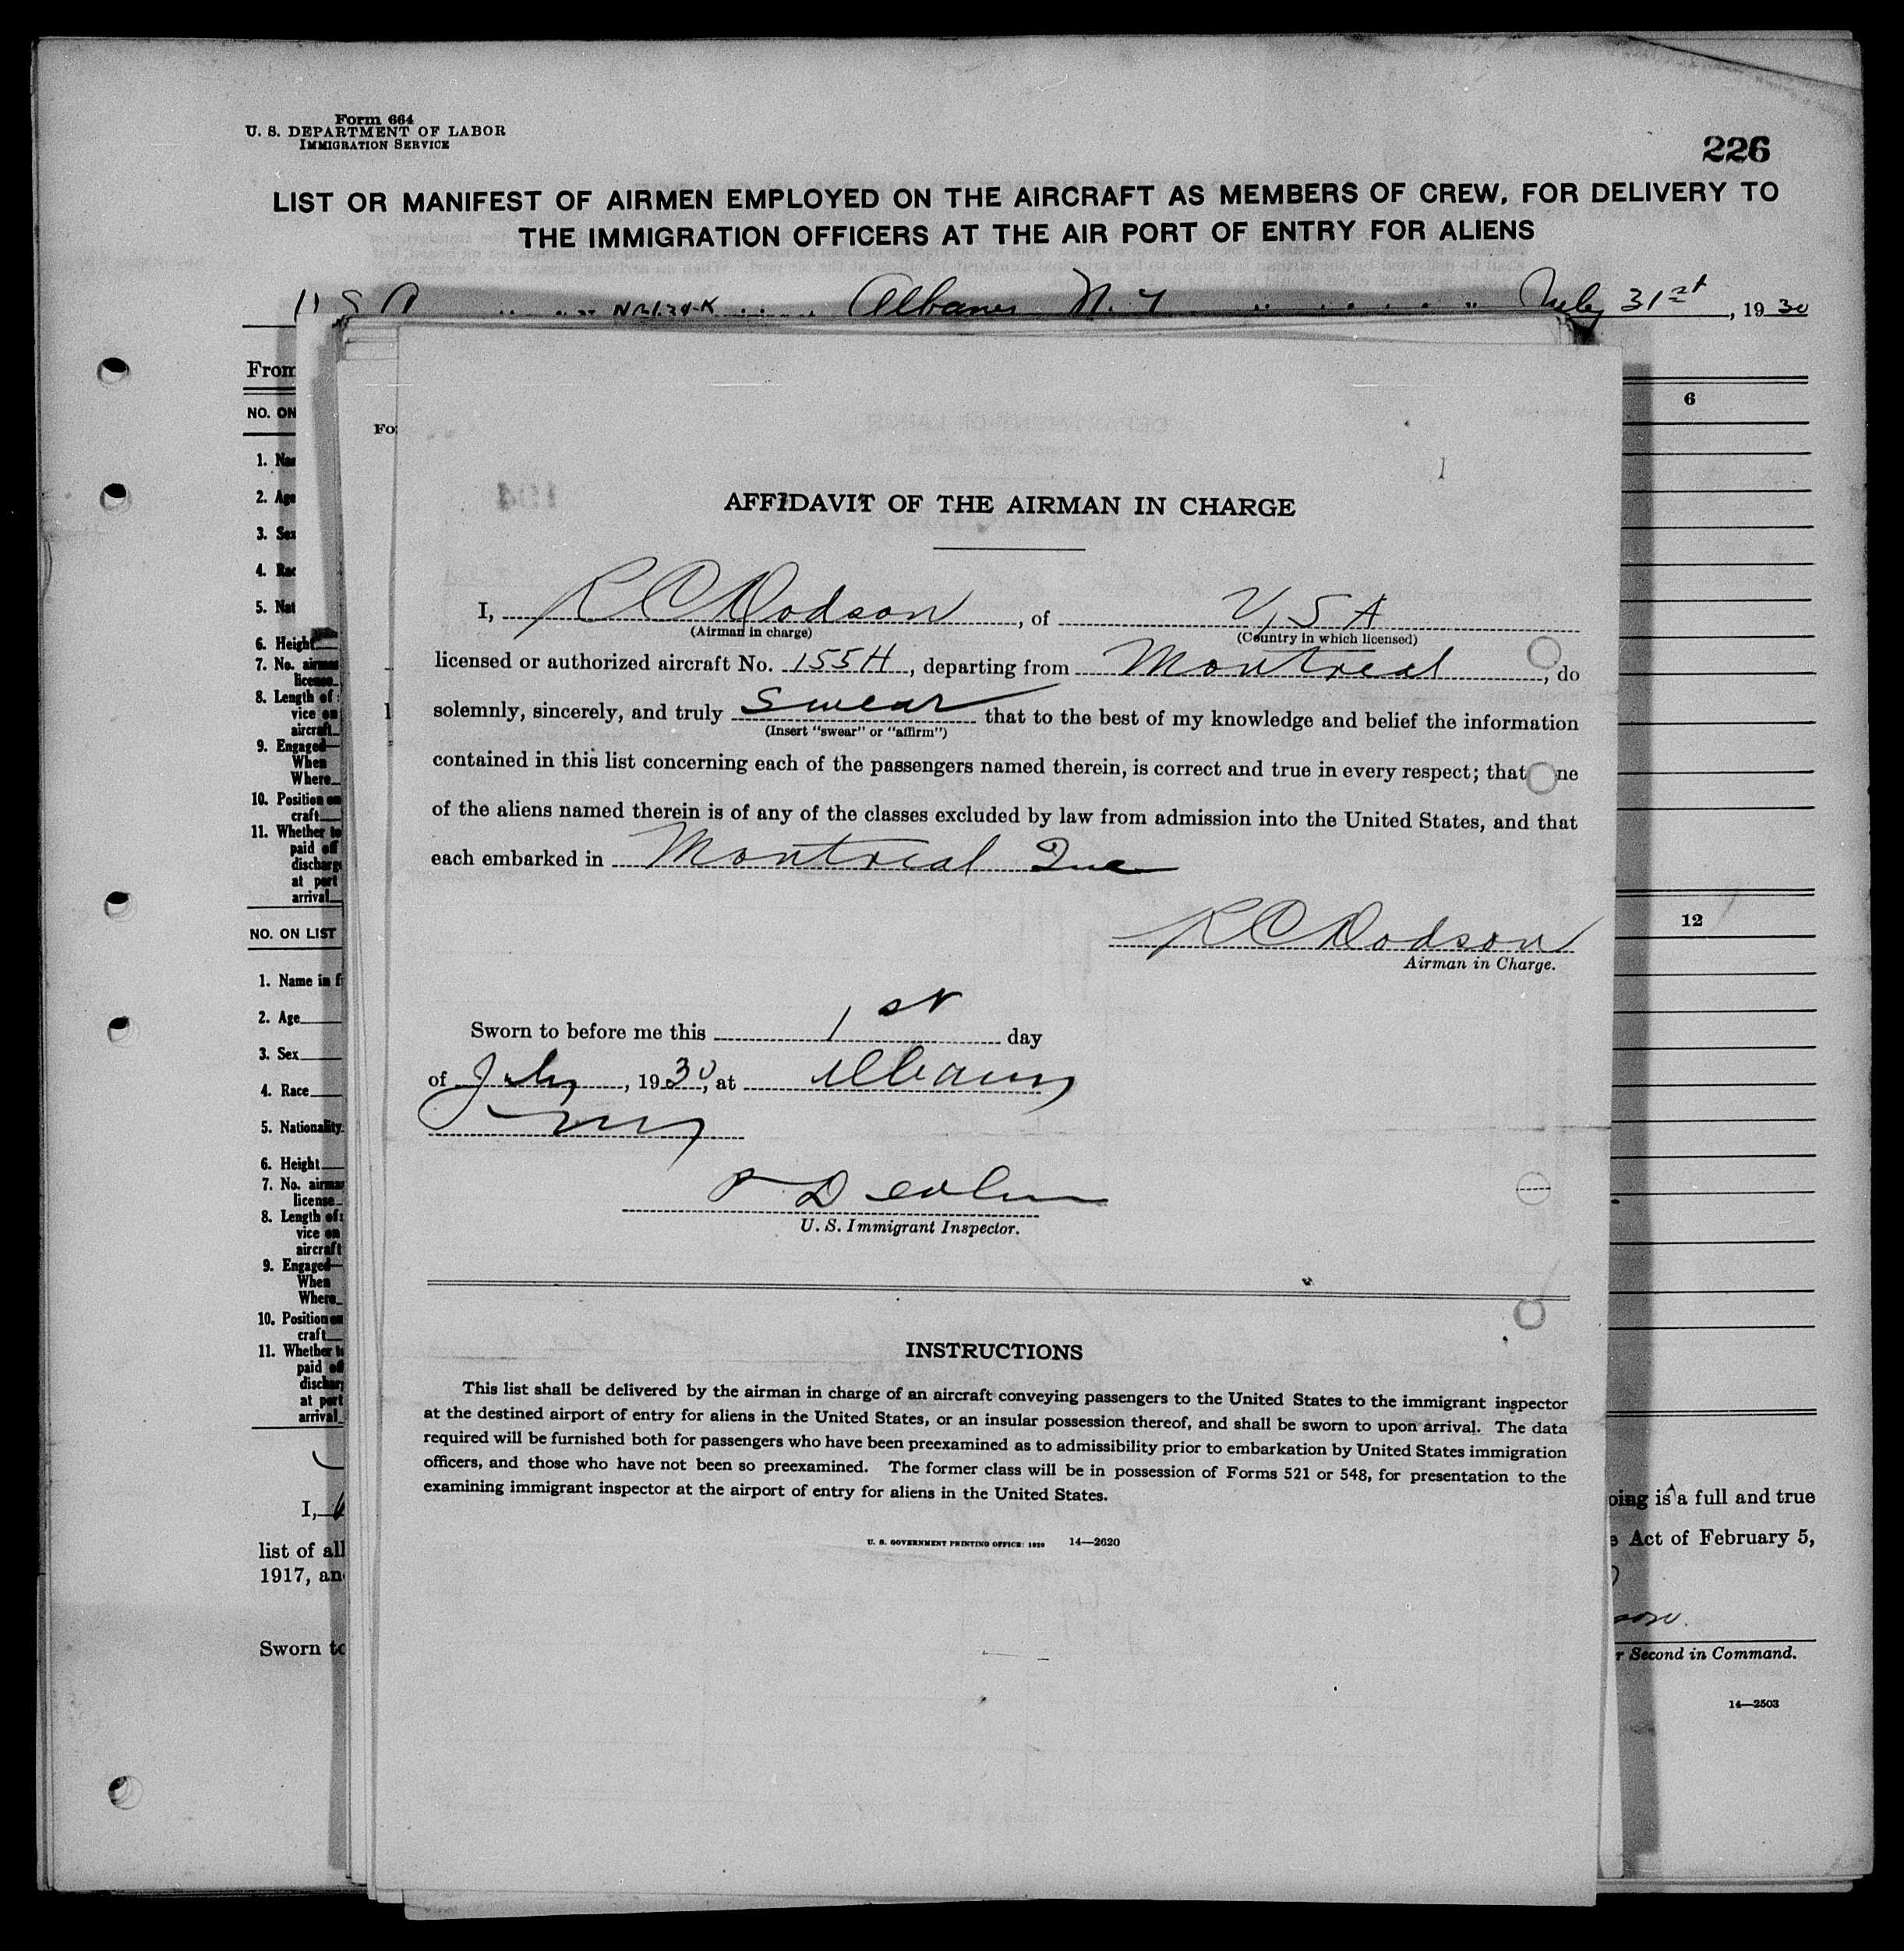 Form 664
U. S. DEPARTMENT OF LABOR
IMMIGRATION SERVICE
226
LIST OR MANIFEST OF AIRMEN EMPLOYED ON THE AIRCRAFT AS MEMBERS OF CREW, FOR DELIVERY TO
THE IMMIGRATION OFFICERS AT THE AIR PORT OF ENTRY FOR ALIENS
U S A Albany N. Y July 31st, 1930
From
NO. ON
6
1. Na
2. Age
3. Sex
4. Rac
5. Nat
6. Height
7. No. airman
license
8. Length of
vice on
aircraft
9. Engaged—
When
Where
10. Position on
craft
11. Whether to
paid off
discharg
at port
arrival
NO. ON LIST
12
1. Name in f
2. Age
3. Sex
4. Race
5. Nationality
6. Height
7. No. airman
license
8. Length of
vice on
aircraft
9. Engaged—
When
Where
10. Position on
craft
11. Whether to
paid off
discharg
at port
arrival
I,
list of all
1917, an
Sworn to
going is a full and true
Act of February 5,
r Second in Command.
14—2503
Fo
AFFIDAVIT OF THE AIRMAN IN CHARGE
I, R C Dodson, of U S A
(Airman in charge) (Country in which licensed)
licensed or authorized aircraft No. 155H, departing from Montreal, do
solemnly, sincerely, and truly swear that to the best of my knowledge and belief the information
(Insert "swear" or "affirm")
contained in this list concerning each of the passengers named therein, is correct and true in every respect; that ne
of the aliens named therein is of any of the classes excluded by law from admission into the United States, and that
each embarked in Montreal Que
R C Dodson
Airman in Charge.
Sworn to before me this 1st day
of July, 1930, at Albany
NY
U. S. Immigrant Inspector.
INSTRUCTIONS
This list shall be delivered by the airman in charge of an aircraft conveying passengers to the United States to the immigrant inspector
at the destined airport of entry for aliens in the United States, or an insular possession thereof, and shall be sworn to upon arrival. The data
required will be furnished both for passengers who have been preexamined as to admissibility prior to embarkation by United States immigration
officers, and those who have not been so preexamined. The former class will be in possession of Forms 521 or 548, for presentation to the
examining immigrant inspector at the airport of entry for aliens in the United States.
U. S. GOVERNMENT PRINTING OFFICE: 1929 14—2620